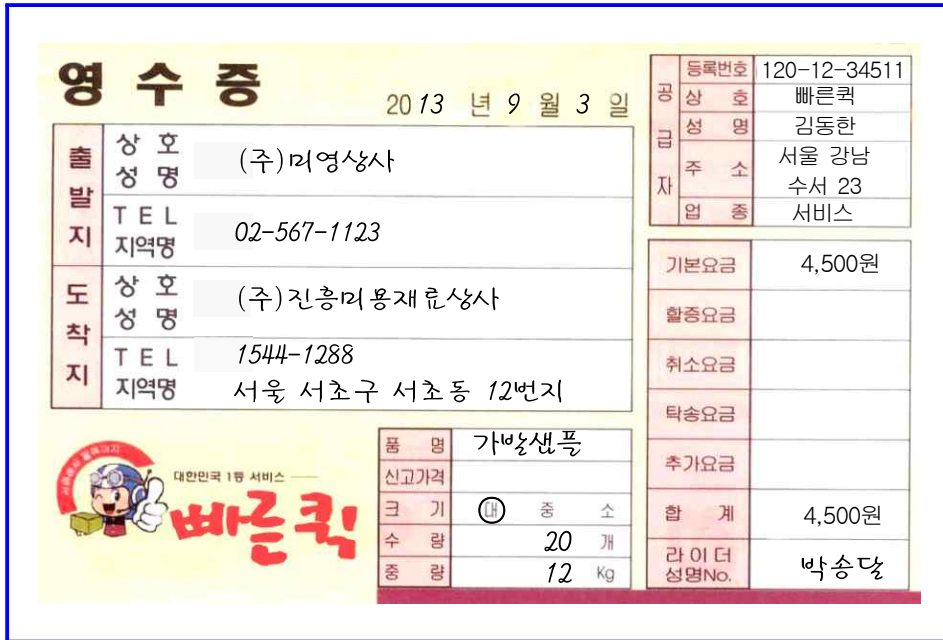 영 수 증
2013 년 9 월 3 일
출발지
상 호
성 명
(주)미영상사
T E L
지역명
02-567-1123
도착지
상 호
성 명
(주)진흥미용재료상사
T E L
지역명
1544-1288
서울 서초구 서초동 12번지
공급자
등록번호 120-12-34511
상 호 빠른퀵
성 명 김동한
주 소 서울 강남
수서 23
업 종 서비스
기본요금 4,500원
할증요금
취소요금
탁송요금
추가요금
합 계 4,500원
라이더
성명No. 박송달
품 명 가발샘플
신고가격
크 기 대 중 소
수 량 20 개
중 량 12 Kg
대한민국 1등 서비스
빠른퀵